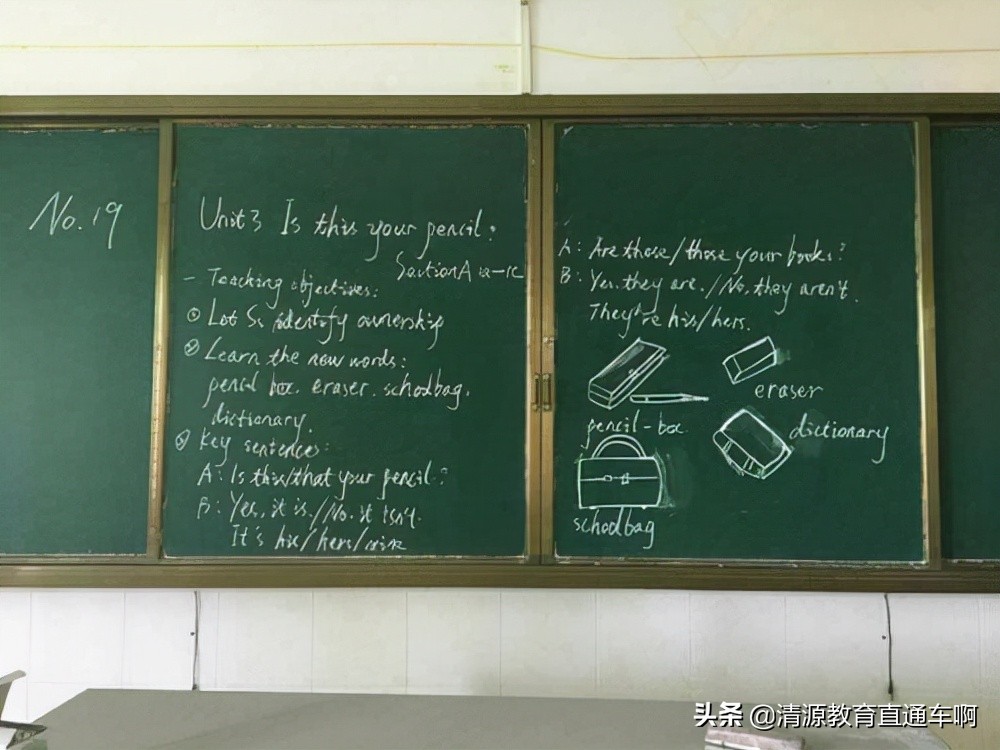 No.19
Unit 3 Is this your pencil?
Section A 1a-1c
- Teaching objectives:
① Let Ss identify ownership
② Learn the new words:
pencil box. eraser. schoolbag.
dictionary.
③ Key sentences:
A: Is this/that your pencil?
B: Yes, it is./No. it isn't.
It's his/hers/mine
A: Are these/those your books?
B: Yes. they are./No, they aren't.
They're his/hers.
pencil-box
eraser
dictionary
schoolbag
头条 @清源教育直通车啊